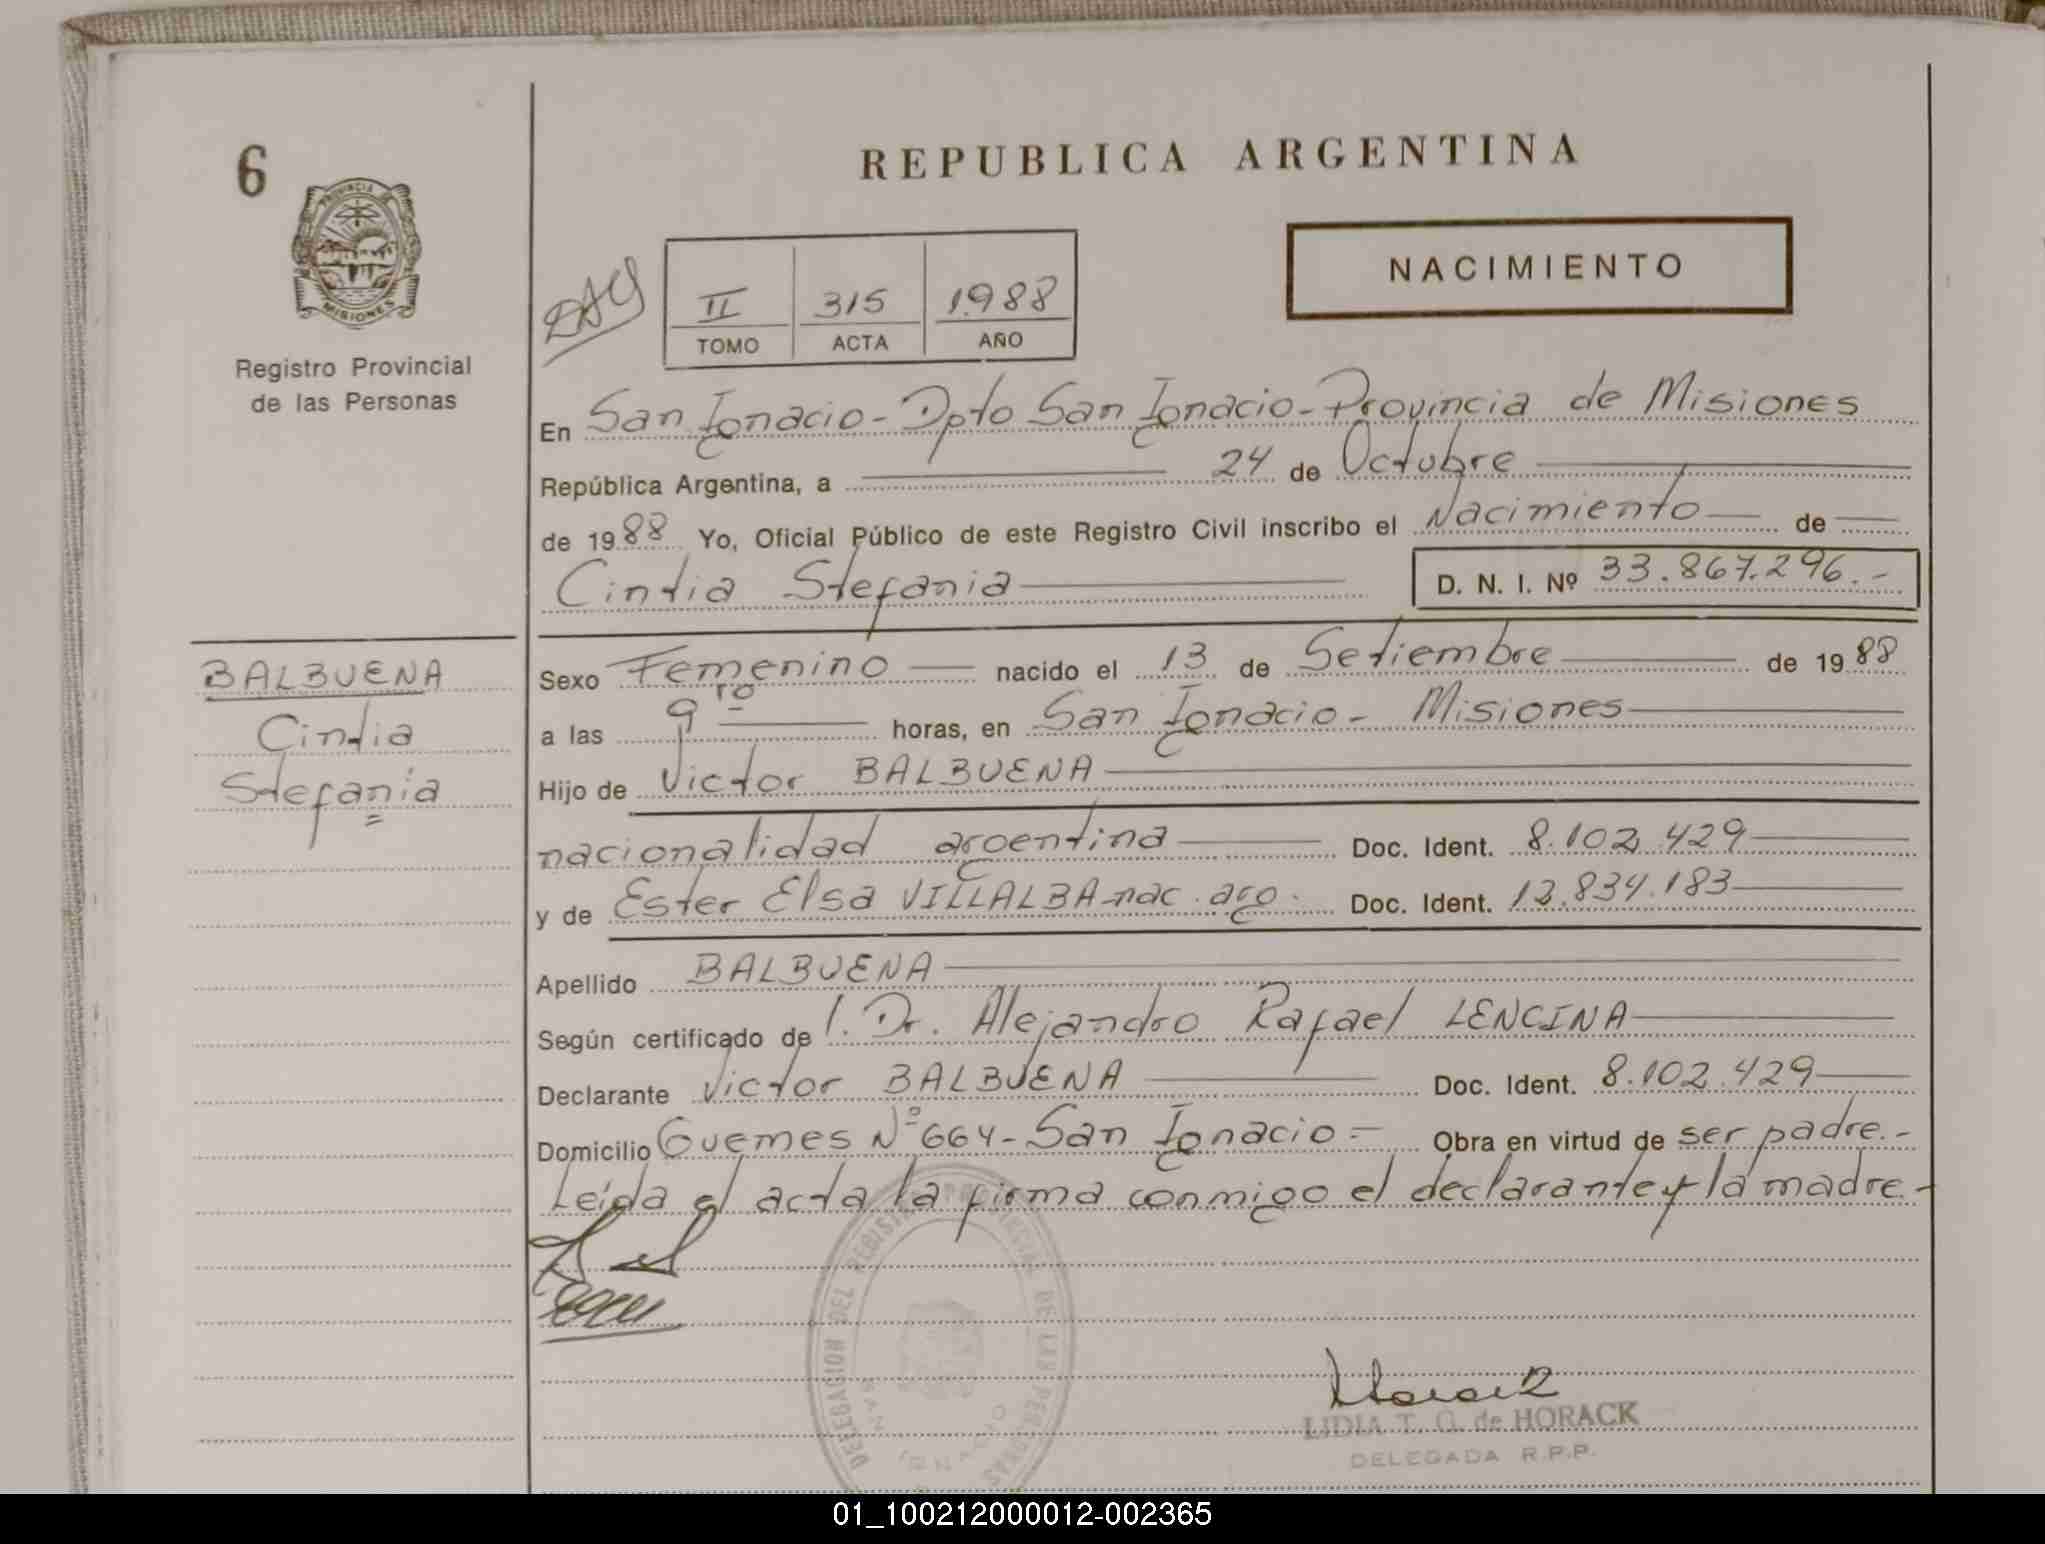 6
REPUBLICA ARGENTINA
PROVINCIA DE
MISIONES
NACIMIENTO
II 315 1988
TOMO ACTA AÑO
Registro Provincial
de las Personas
En San Ignacio - Dpto San Ignacio - Provincia de Misiones
República Argentina, a 24 de Octubre
de 1988 Yo, Oficial Público de este Registro Civil inscribo el Nacimiento de
Cintia Stefania D. N. I. Nº 33.867.296.-
BALBUENA
Cintia
Stefania
Sexo Femenino nacido el 13 de Setiembre de 1988
a las 9 horas, en San Ignacio - Misiones
Hijo de Victor BALBUENA
nacionalidad argentina Doc. Ident. 8.102.429
y de Ester Elsa VILLALBA - nac. arg. Doc. Ident. 13.834.183
Apellido BALBUENA
Según certificado de l. Dr. Alejandro Rafael LENCINA
Declarante Victor BALBUENA Doc. Ident. 8.102.429
Domicilio Guemes Nº 664 - San Ignacio = Obra en virtud de ser padre.-
Leída el acta la firma conmigo el declarante y la madre.-
DELEGACION DEL REGISTRO PROVINCIAL DE LAS PERSONAS
Horack
LIDIA T. G. de HORACK
DELEGADA R.P.P.
01_100212000012-002365